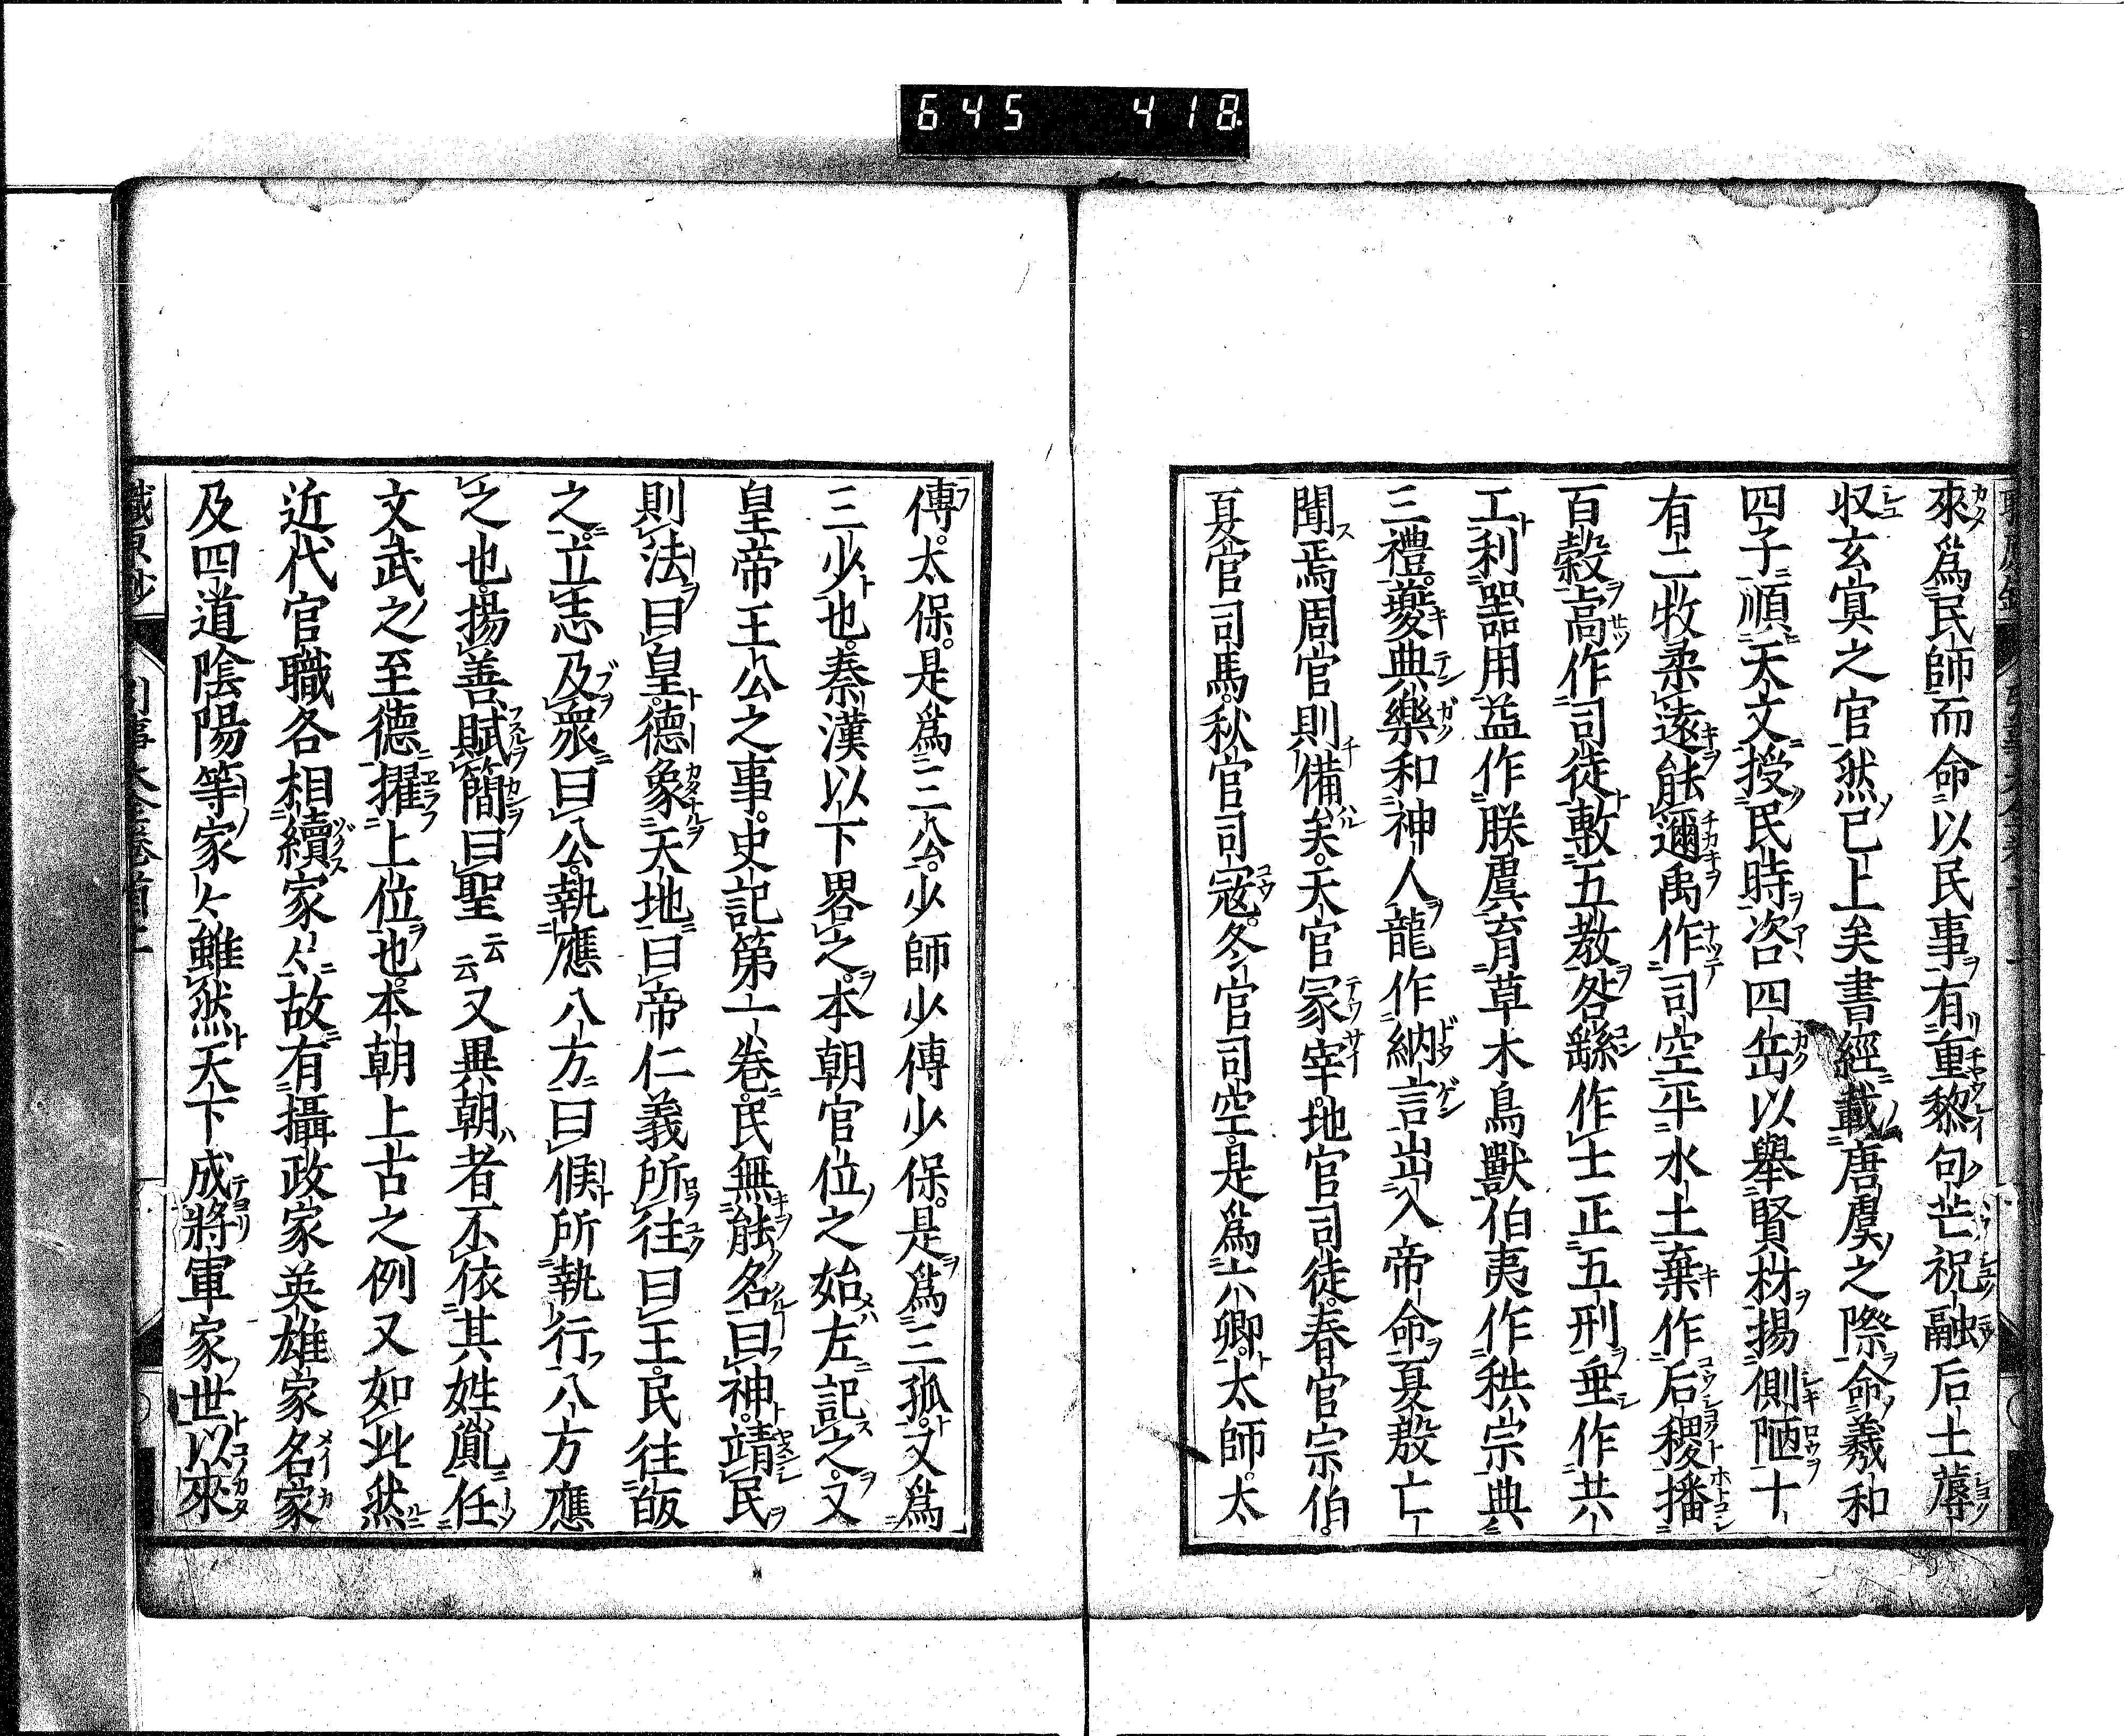 645 418
來爲民師而命以民事有重黎句芒祝融后土蓐
収玄冥之官然已上矣書經載唐虞之際命羲和
四子順天文授民時咨四岳以舉賢材揚側陋十
有二牧柔遠能邇禹作司空平水土棄作后稷播
百穀卨作司徒敷五教咎繇作士正五刑垂作共
工利器用益作朕虞育草木鳥獸伯夷作秩宗典
三禮夔典樂和神人龍作納言出入帝命夏殷亡
聞焉周官則備矣天官冢宰地官司徒春官宗伯
夏官司馬秋官司寇冬官司空是爲六卿太師太
傅太保是爲三公少師少傅少保是爲三孤又爲
三少也秦漢以下畧之本朝官位之始左記之又
皇帝王公之事史記第一卷民無能名曰神靖民
則法曰皇德象天地曰帝仁義所往曰王民往皈
之立志及衆曰公執應八方曰候所執行八方應
之也揚善賦簡曰聖云云又異朝者不依其姓胤任
文武之至德擢上位也本朝上古之例又如此然
近代官職各相續家々故有攝政家英雄家名家
及四道陰陽等家々雖然天下成將軍家世以來